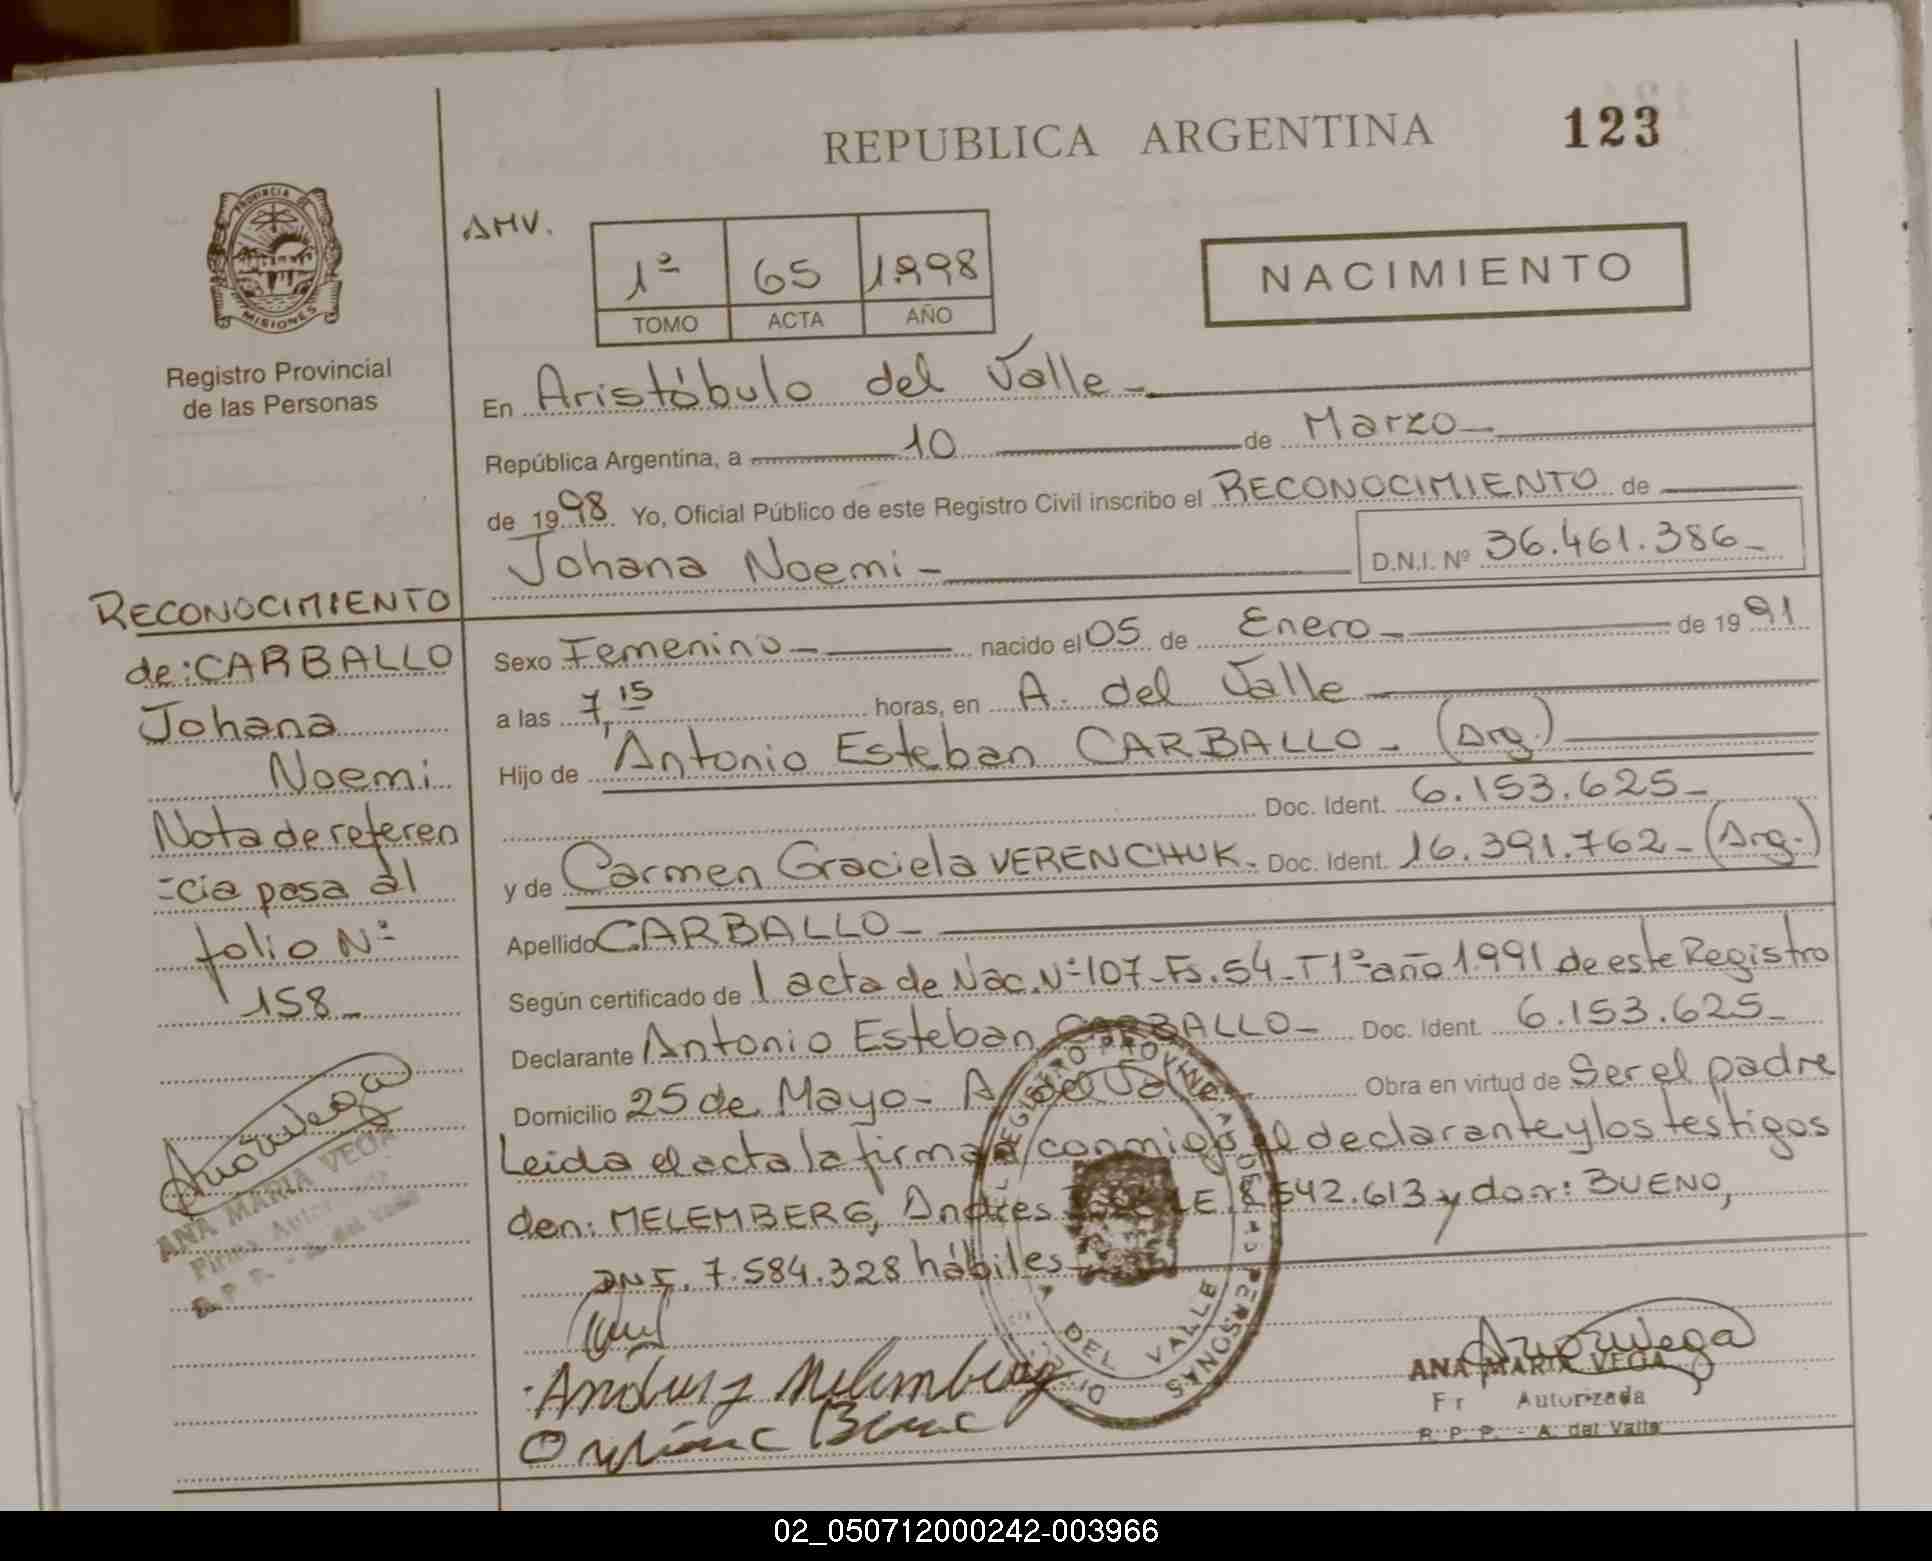 REPUBLICA ARGENTINA
123
PROVINCIA DE
MISIONES
Registro Provincial
de las Personas
AMV.
1º 65 1998
TOMO ACTA AÑO
NACIMIENTO
En Aristóbulo del Valle-
República Argentina, a 10 de Marzo-
de 1998 Yo, Oficial Público de este Registro Civil inscribo el RECONOCIMIENTO de
Johana Noemi- D.N.I. Nº 36.461.386-
RECONOCIMIENTO
de: CARBALLO
Johana
Noemi
Nota de referen
-cia pasa al
folio Nº
158-
ANA MARIA VEGA
Sexo Femenino- nacido el 05 de Enero- de 1991
a las 7,15 horas, en A. del Valle
Hijo de Antonio Esteban CARBALLO- (Arg.)
Doc. Ident. 6.153.625-
y de Carmen Graciela VERENCHUK- Doc. Ident. 16.391.762- (Arg.)
Apellido CARBALLO-
Según certificado de 1 acta de Nac. Nº 107-Fs. 54-T1º año 1.991 de este Registro
Declarante Antonio Esteban CARBALLO- Doc. Ident. 6.153.625-
Domicilio 25 de Mayo- A del Valle Obra en virtud de Ser el padre
Leida el acta la firman conmigo el declarante y los testigos
den: MELEMBERG, Andres LE. 8.542.613 y don: BUENO,
DNI. 7.584.328 hábiles
REGISTRO PROVINCIAL DE LAS PERSONAS
DEL VALLE
Andres Melemberg
ANA MARIA VEGA
Autorizada
R. P. P. - A. del Valle
02_050712000242-003966